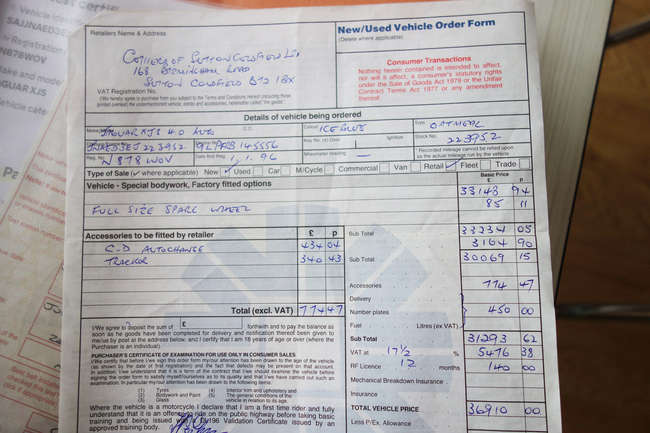 Vehicle
SAJJNAED3E
Registration
N878WOV
Make and model
JAGUAR XJS
Vehicle cate
Retailers Name & Address
COLLIERS OF SUTTON COLDFIELD Ltd
168 BIRMINGHAM ROAD
SUTTON COLDFIELD B72 1BX
VAT Registration No.
New/Used Vehicle Order Form
(Delete where applicable)
Consumer Transactions
Nothing herein contained is intended to affect,
nor will it affect, a consumer's statutory rights
under the Sale of Goods Act 1979 or the Unfair
Contract Terms Act 1977 or any amendment
thereof.
Details of vehicle being ordered
JAGUAR XJS 4.0 AUTO C.C. Colour ICE BLUE Trim OATMEAL
JNAED3EJ 223952 9LPFB 145556 Key No. (s) Door Ignition Stock No. 223952
Reg. No. N878 WOV Date first Reg. 1.1.96 Mileometer reading Recorded mileage cannot be relied upon
as the actual mileage run by the vehicle
Type of Sale (✓ where applicable) New ✓ Used Car M/Cycle Commercial Van Retail ✓ Fleet Trade
Vehicle - Special bodywork, Factory fitted options Basic Price
£ p
33148 94
85 11
FULL SIZE SPARE WHEEL
Accessories to be fitted by retailer £ p
Sub Total 33234 05
3164 90
C-D AUTOCHANGE 434 04
TRACKOR 340 43
Sub Total 30069 15
Accessories 774 47
Delivery
Number plates 450 00
Fuel Litres (ex.VAT)
Total (excl. VAT) 774 47
I/We agree to deposit the sum of £ forthwith and to pay the balance as
soon as the goods have been completed for delivery and notification thereof been given to
me/us by post at the address below: and I certify that I am 18 years of age or over (where the
Purchaser is an individual).
Sub Total 31293 62
VAT at 17½ % 5476 38
RF Licence 12 months 140 00
Mechanical Breakdown Insurance
Insurance
TOTAL VEHICLE PRICE 36910 00
Less P/Ex. Allowance
PURCHASER'S CERTIFICATE OF EXAMINATION FOR USE ONLY IN CONSUMER SALES
(1) Tyres (4) Interior trim and upholstery and
(2) Bodywork and Paint (5) The general conditions of the
(3) Glass vehicle in relation to its age.
Where the vehicle is a motorcycle I declare that I am a first time rider and fully
understand that it is an offence to ride on the public highway before taking basic
training and being issued with a Dl196 Validation Certificate issued by an
approved training body.